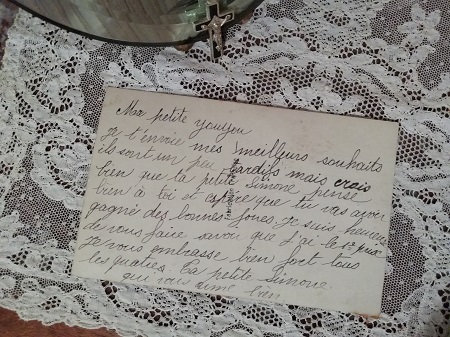 Ma petite youyou
Je t'envoie mes meilleurs souhaits
ils sont un peu tardifs mais crois
bien que ta petite Simone pense
bien à toi et espère que tu vas avoir
gagné des bonnes joues. Je suis heureuse
de vous faire savoir que j'ai le 1er prix
Je vous embrasse bien fort tous
les quatres. Ta petite Simone
qui vous aime bien